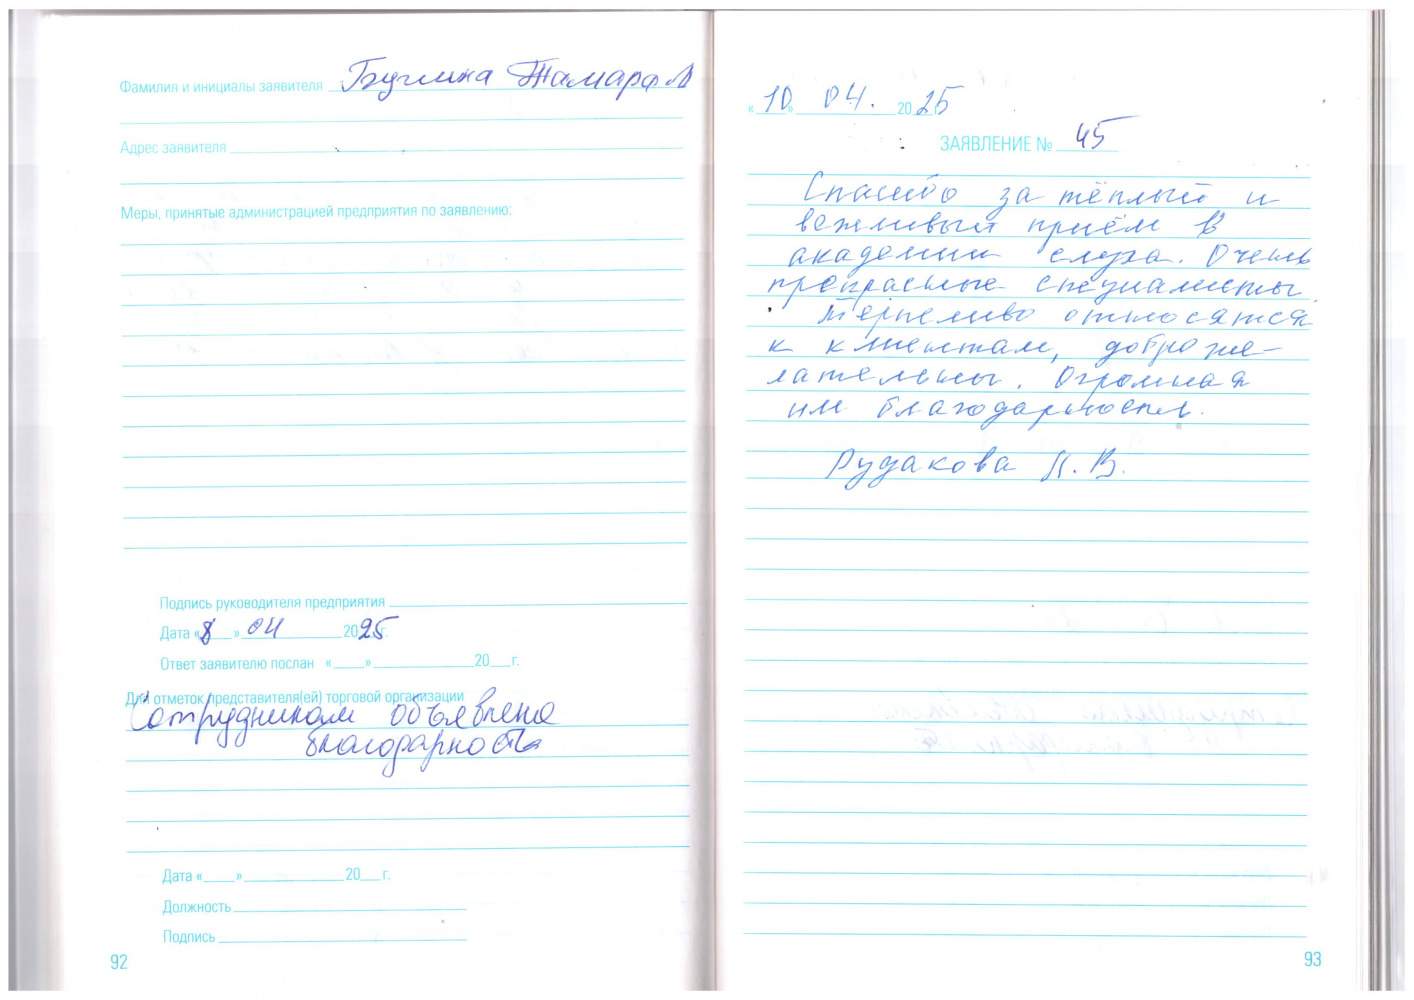 Фамилия и инициалы заявителя Тамара
Адрес заявителя
Меры, принятые администрацией предприятия по заявлению:
Подпись руководителя предприятия
Дата «8» 04 2025 г.
Ответ заявителю послан «___» 20__г.
Для отметок представителя(ей) торговой организации
Сотрудникам объявлена
благодарность
Дата «___» 20__г.
Должность
Подпись
92
«10» 04. 2025
ЗАЯВЛЕНИЕ № 45
Спасибо за тёплый и
вежливый приём в
академии слуха. Очень
прекрасные специалисты.
Терпеливо относятся
к клиентам, доброже-
лательны. Огромная
им благодарность.
Рудакова В.
93